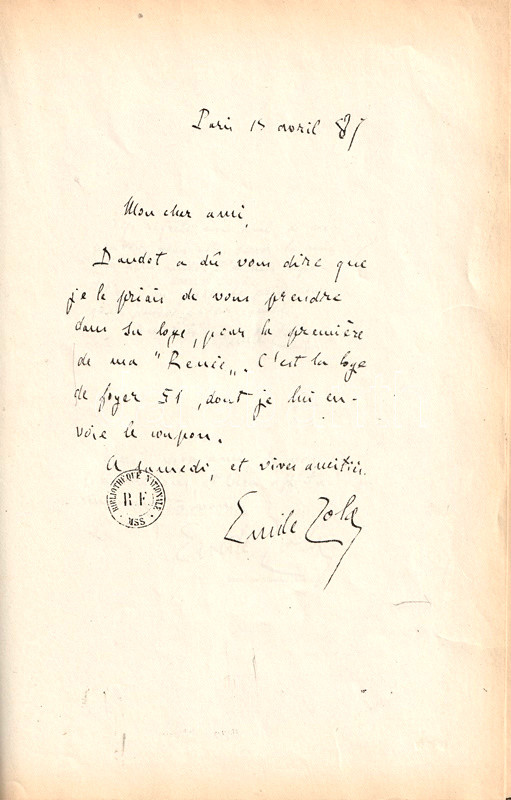 Paris 15 avril 87
Mon cher ami,
Daudet a dû vous dire que
je le priais de vous prendre
dans sa loge, pour la première
de ma "Renée". C'est la loge
de foyer 51, dont je lui en-
voie le coupon.
A samedi, et vives amitiés.
Emile Zola
BIBLIOTHÈQUE NATIONALE
R.F.
MSS